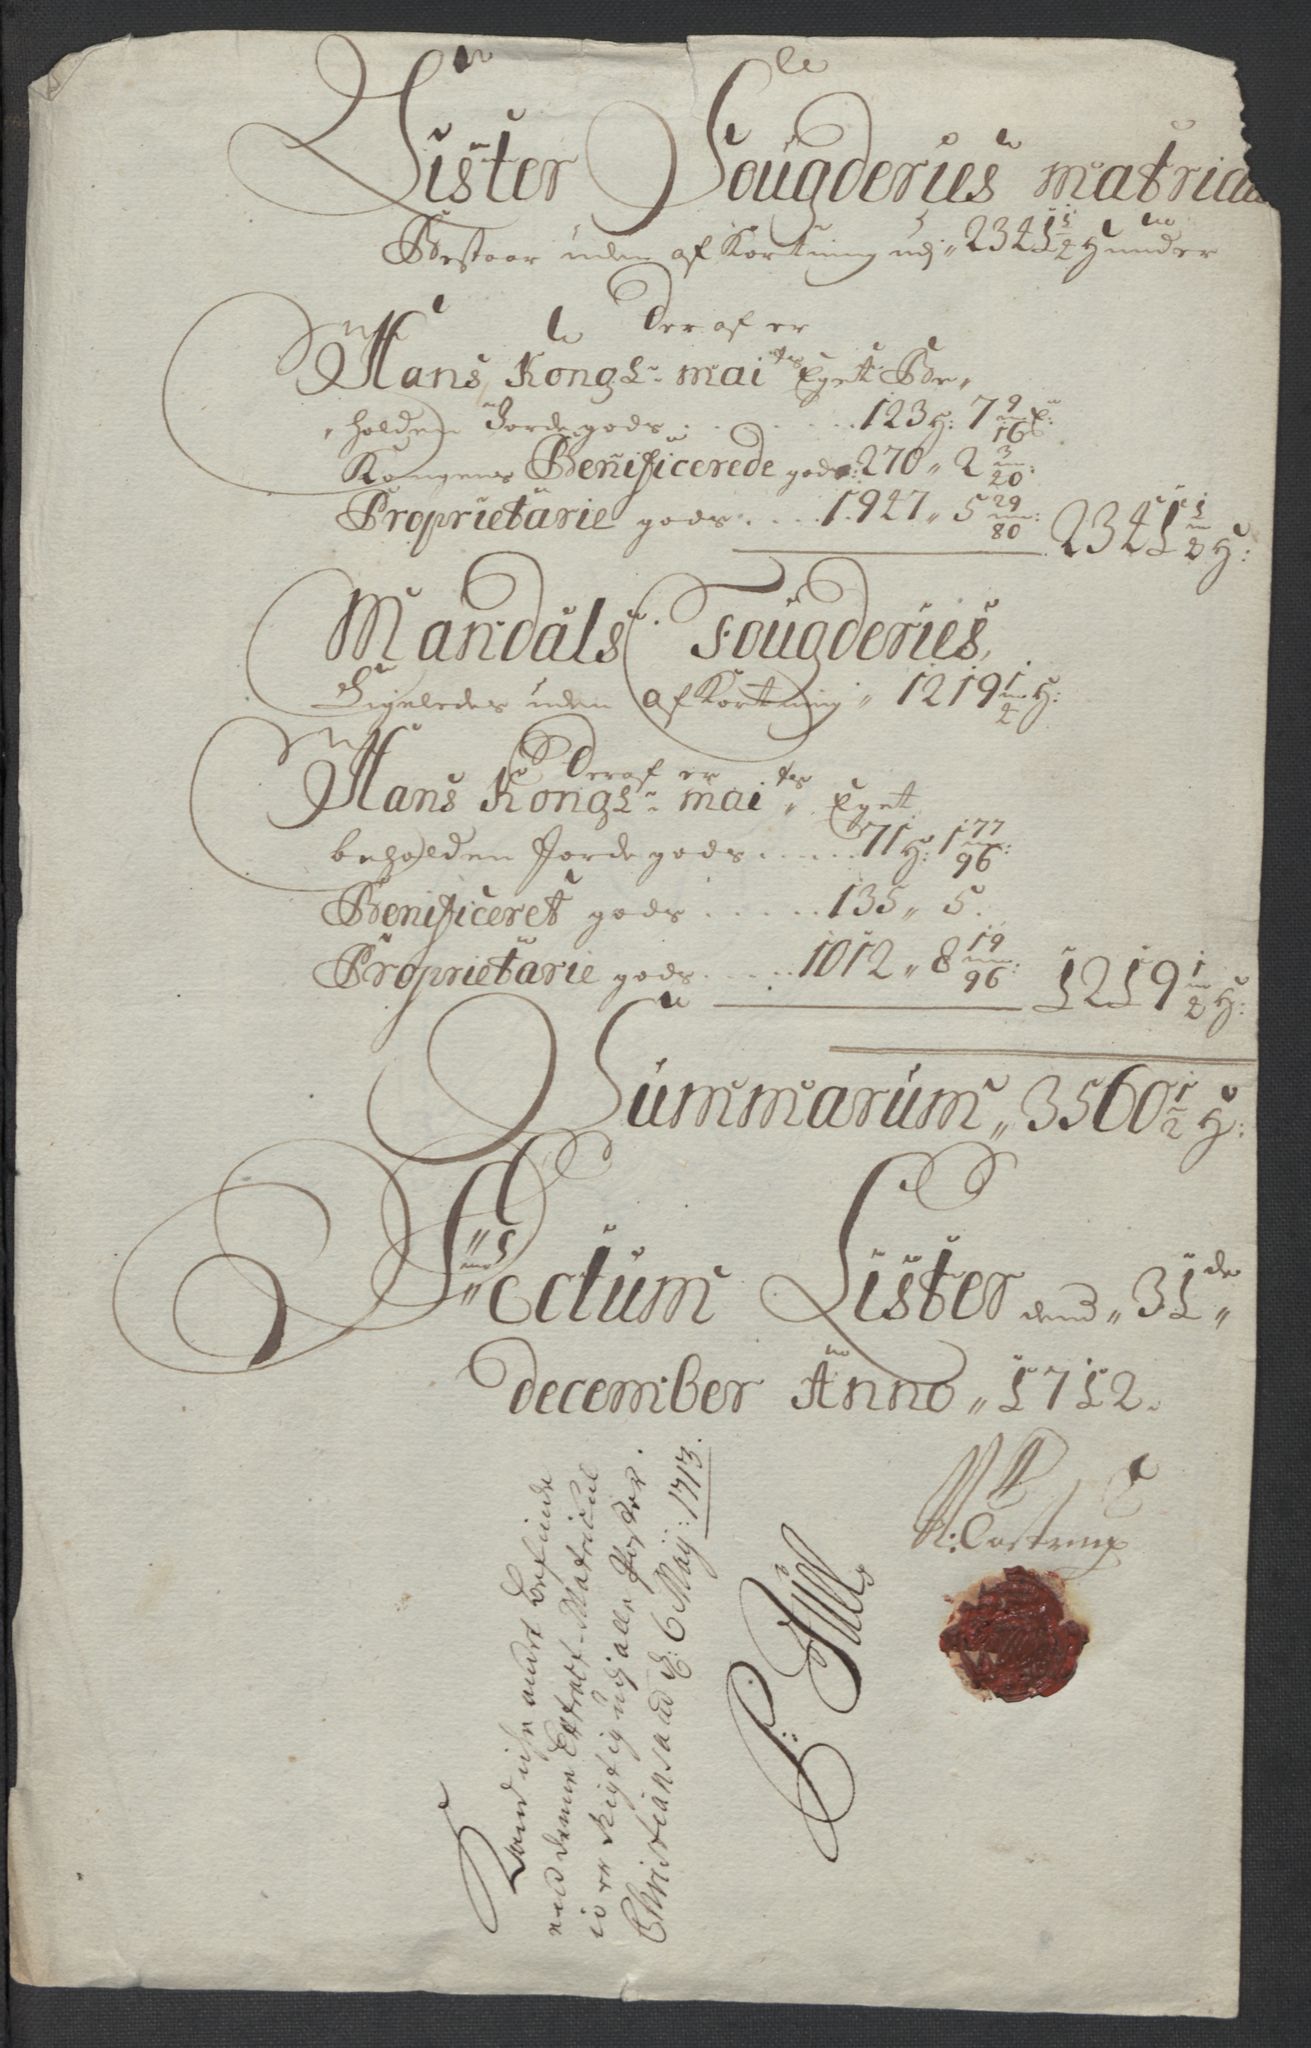 Lister Fougderies matricul
Bestaar uden afkortning udj „ 2341 1/2 Hunder
Deraf er
Hans Kongl: mai:ts Eget Be,
,holden Jordegods . . . . . . . . 123 H: 7 9/16 L:
Kongens Benificerede gods: 270 „ 2 3/20:
Proprietarie gods . . . . 1947 „ 5 29/80: 2341 1/2 H:
Mandals Fougderies,
Ligeledes uden afkortning „ 1219 1/2 H:
Deraf er
Hans Kongl: mai:ts Eget
beholden Jordegods . . . . . 71 H: 1 77/96:
Benificeret gods . . . . . 135 „ 5.
Proprietarie gods . . . . . 1012 „ 8 19/96: 1219 1/2 H:
Summarum „ 3560 1/2 H:
Actum Lister dend „ 31de „
december Anno „ 1712.
N: Costrup
andet befindes
ved denne Extract-Matricul
rigtig udj alle Poster.
Christiansand d: 6 Maÿ: 1713.
P: Juell